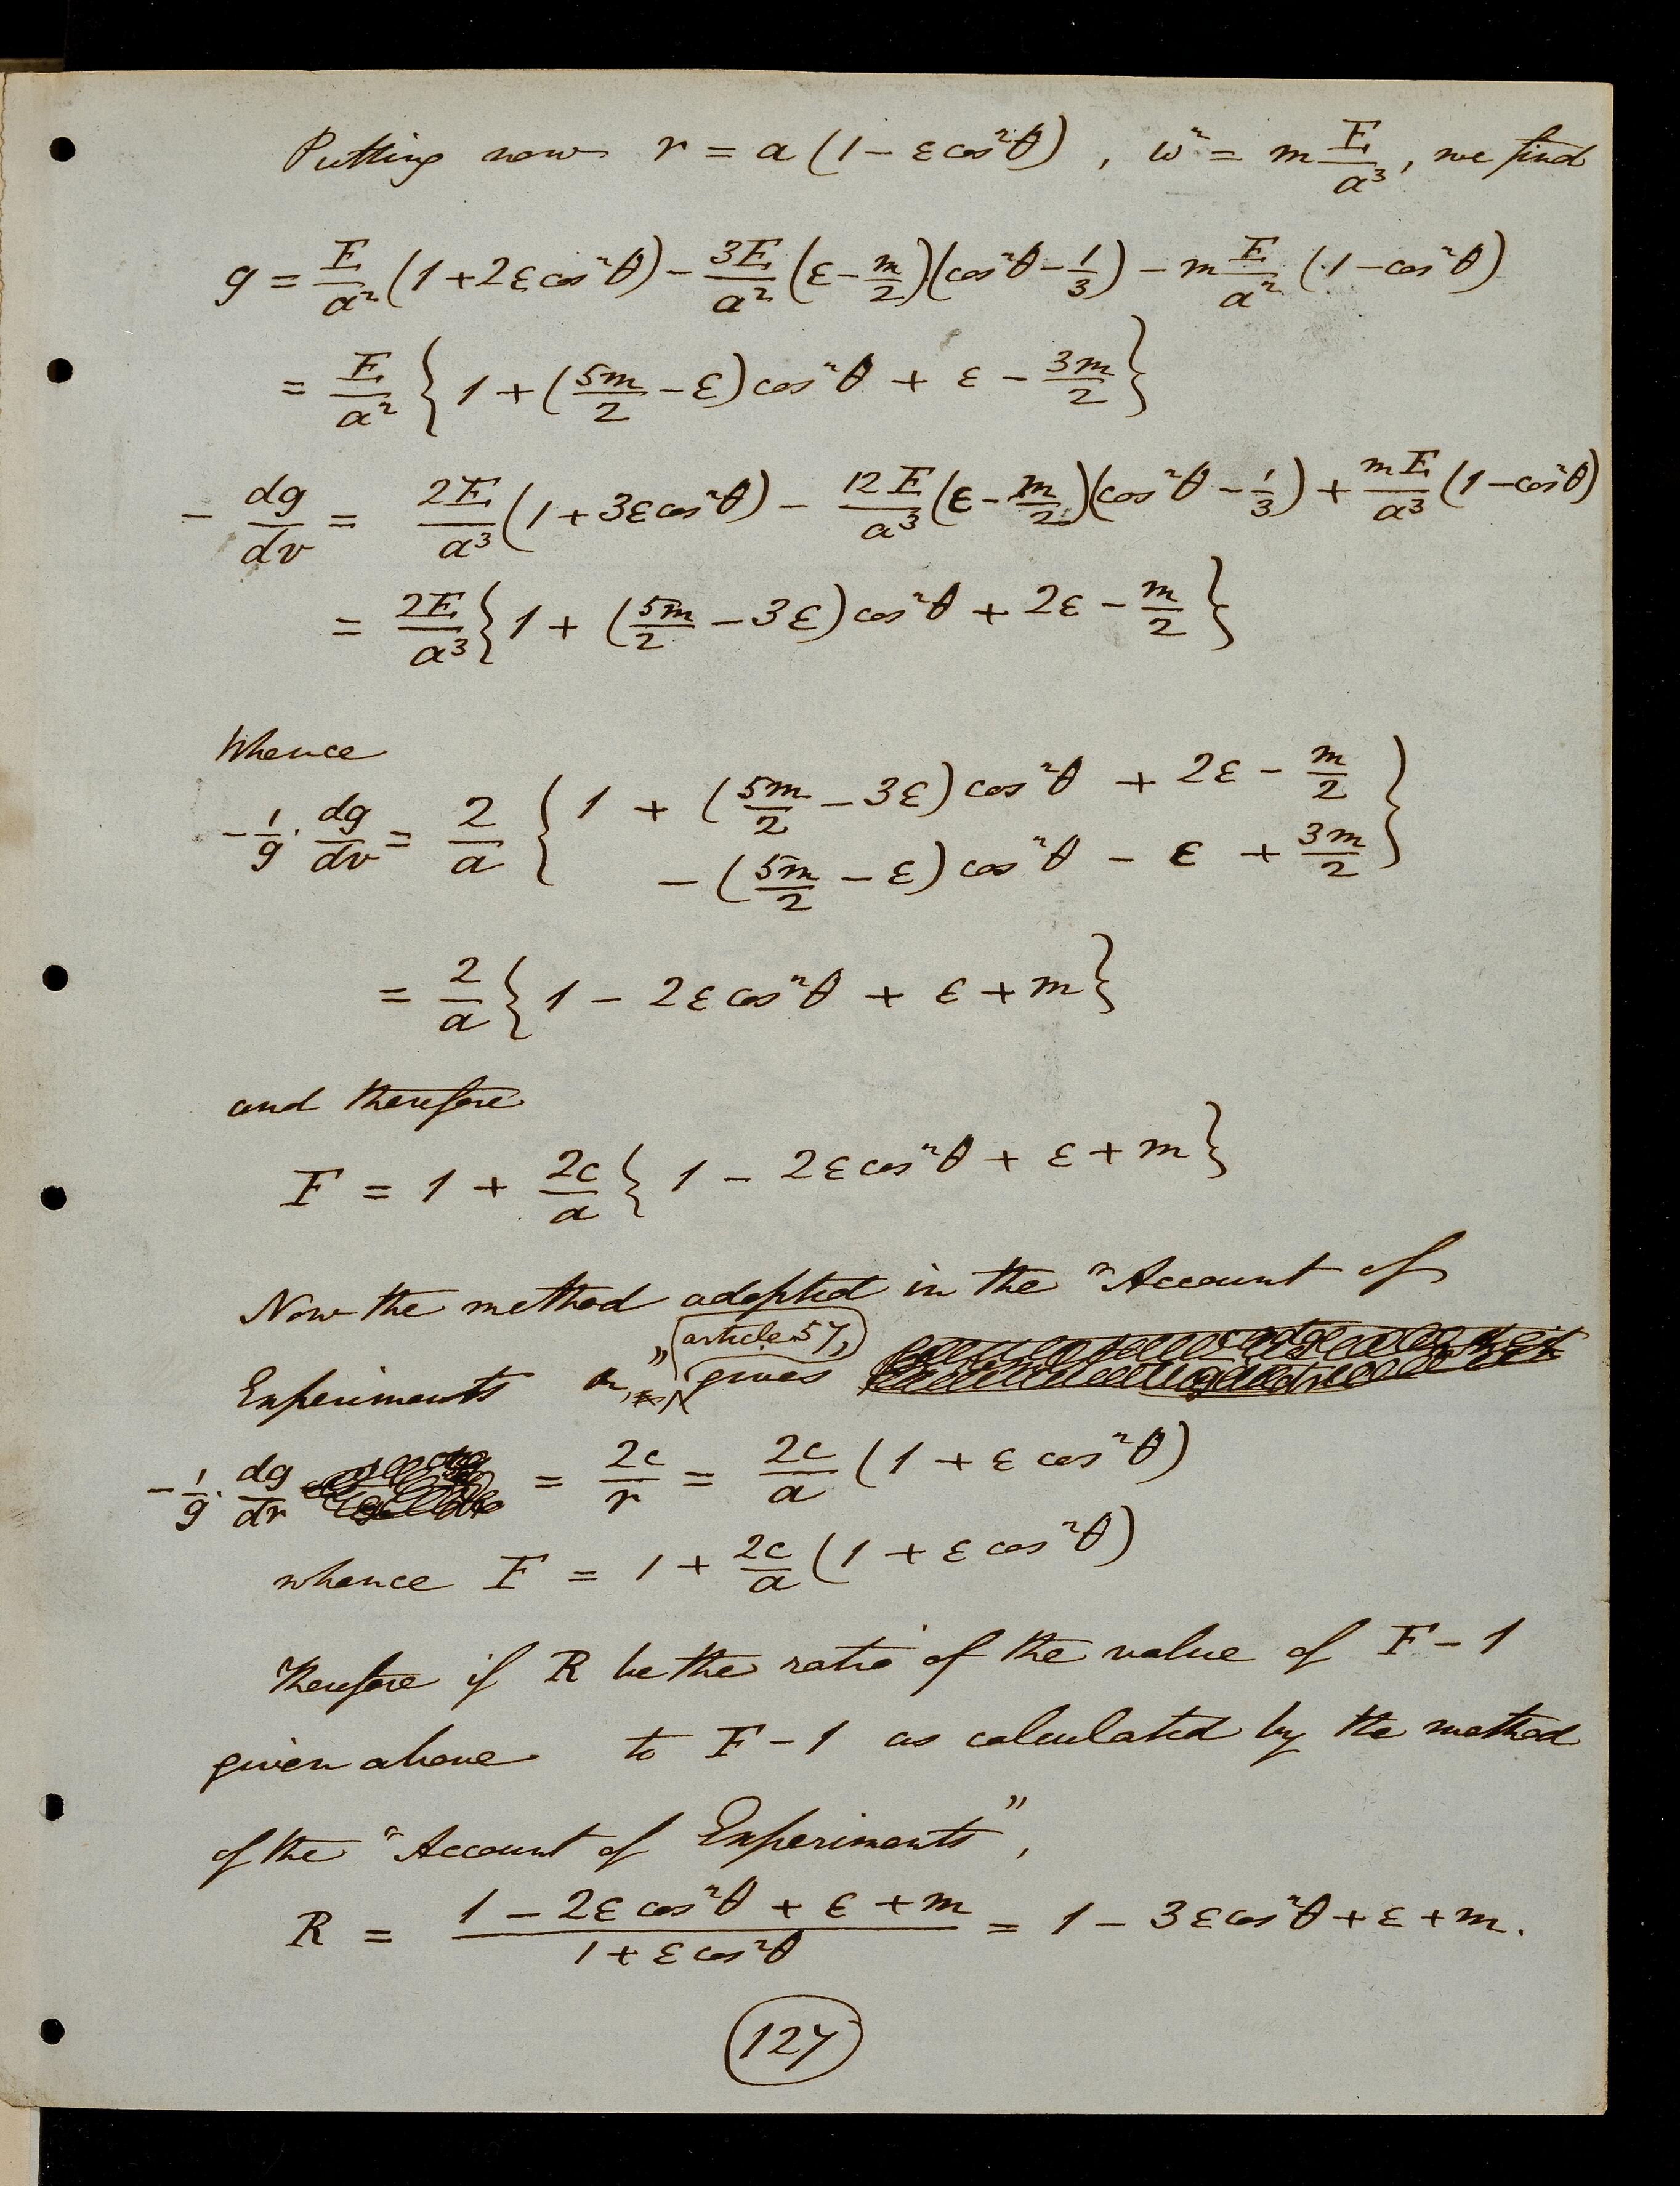 Putting now r = a (1 − ε cos²θ) , ω² = m E/a³, we find
g = E/a² (1 + 2ε cos²θ) − 3E/a² (ε − m/2)(cos²θ − 1/3) − m E/a² (1 − cos²θ)
= E/a² { 1 + (5m/2 − ε) cos²θ + ε − 3m/2 }
− dg/dν = 2E/a³ (1 + 3ε cos²θ) − 12E/a³ (ε − m/2)(cos²θ − 1/3) + mE/a³ (1 − cos²θ)
= 2E/a³ { 1 + (5m/2 − 3ε) cos²θ + 2ε − m/2 }
Whence
− 1/g · dg/dν = 2/a { 1 + (5m/2 − 3ε) cos²θ + 2ε − m/2
− (5m/2 − ε) cos²θ − ε + 3m/2 }
= 2/a { 1 − 2ε cos²θ + ε + m }
and therefore
F = 1 + 2c/a { 1 − 2ε cos²θ + ε + m }
Now the method adopted in the "Account of
Experiments " article 57, gives
− 1/g · dg/dr = 2c/r = 2c/a (1 + ε cos²θ)
whence F = 1 + 2c/a (1 + ε cos²θ)
Therefore if R be the ratio of the value of F − 1
given above to F − 1 as calculated by the method
of the "Account of Experiments",
R = (1 − 2ε cos²θ + ε + m)/(1 + ε cos²θ) = 1 − 3ε cos²θ + ε + m.
127